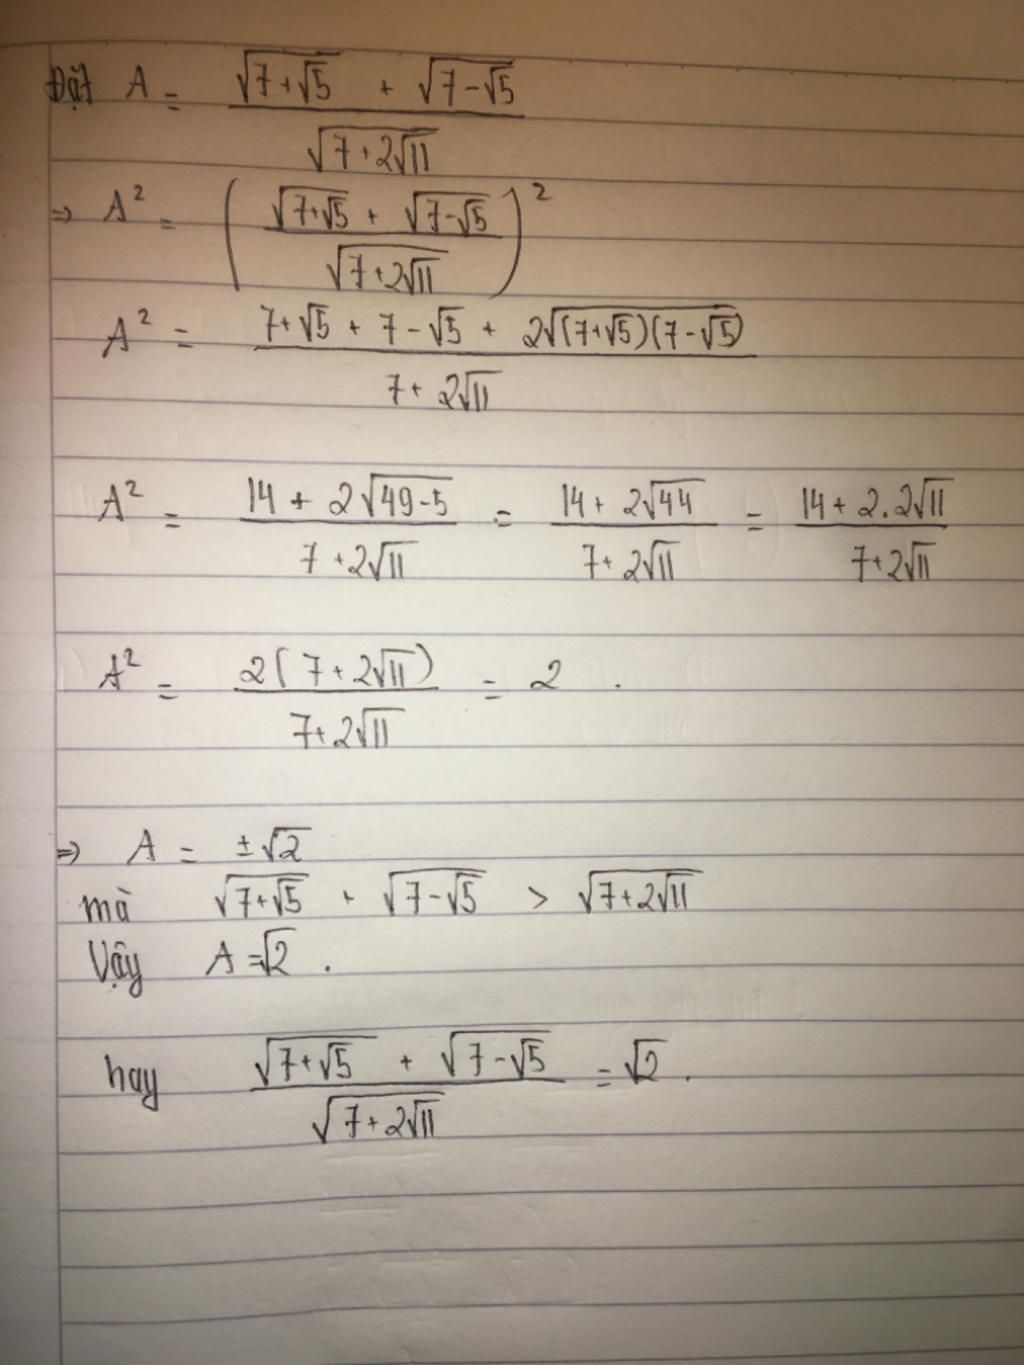 Đặt A = (√(7+√5) + √(7-√5)) / √(7+2√11)
⇒ A² = ((√(7+√5) + √(7-√5)) / √(7+2√11))²
A² = (7+√5 + 7-√5 + 2√((7+√5)(7-√5))) / (7+2√11)
A² = (14 + 2√(49-5)) / (7+2√11) = (14+2√44) / (7+2√11) = (14+2.2√11) / (7+2√11)
A² = 2(7+2√11) / (7+2√11) = 2 .
⇒ A = ±√2
mà √(7+√5) + √(7-√5) > √(7+2√11)
Vậy A=√2 .
hay (√(7+√5) + √(7-√5)) / √(7+2√11) = √2 .